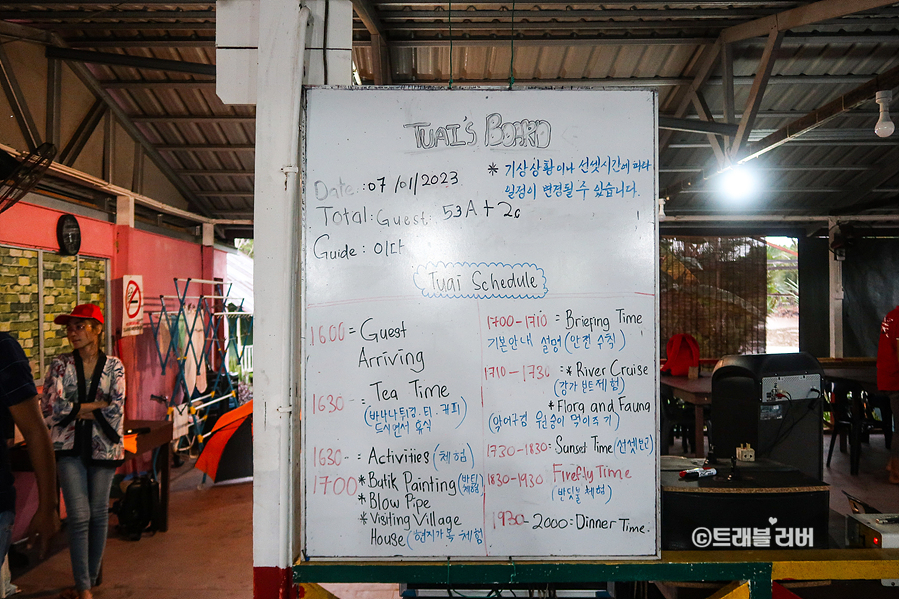 TUAI'S BOARD
Date : 07/01/2023
* 기상상황이나 선셋시간에 따라
일정이 변경될 수 있습니다.
Total : Guest : 53A + 2c
Guide : 이다
Tuai Schedule
1600 = Guest
Arriving
1630 = Tea Time
(바나나튀김. 티. 커피)
1630 = Activities (체험)
1700 * Batik Painting (바틱체험)
* Blow Pipe
* Visiting Village
House (현지가옥 체험)
1700-1710 = Briefing Time
기본안내 설명 (안전수칙)
1710-1730 = * River Cruise
(강가 보트체험)
* Flora and Fauna
(악어구경 원숭이 먹이주기)
1730-1830 = Sunset Time (선셋판)
1830-1930 Firefly Time
(반딧불 체험)
1930-2000 = Dinner Time
©트래블러버